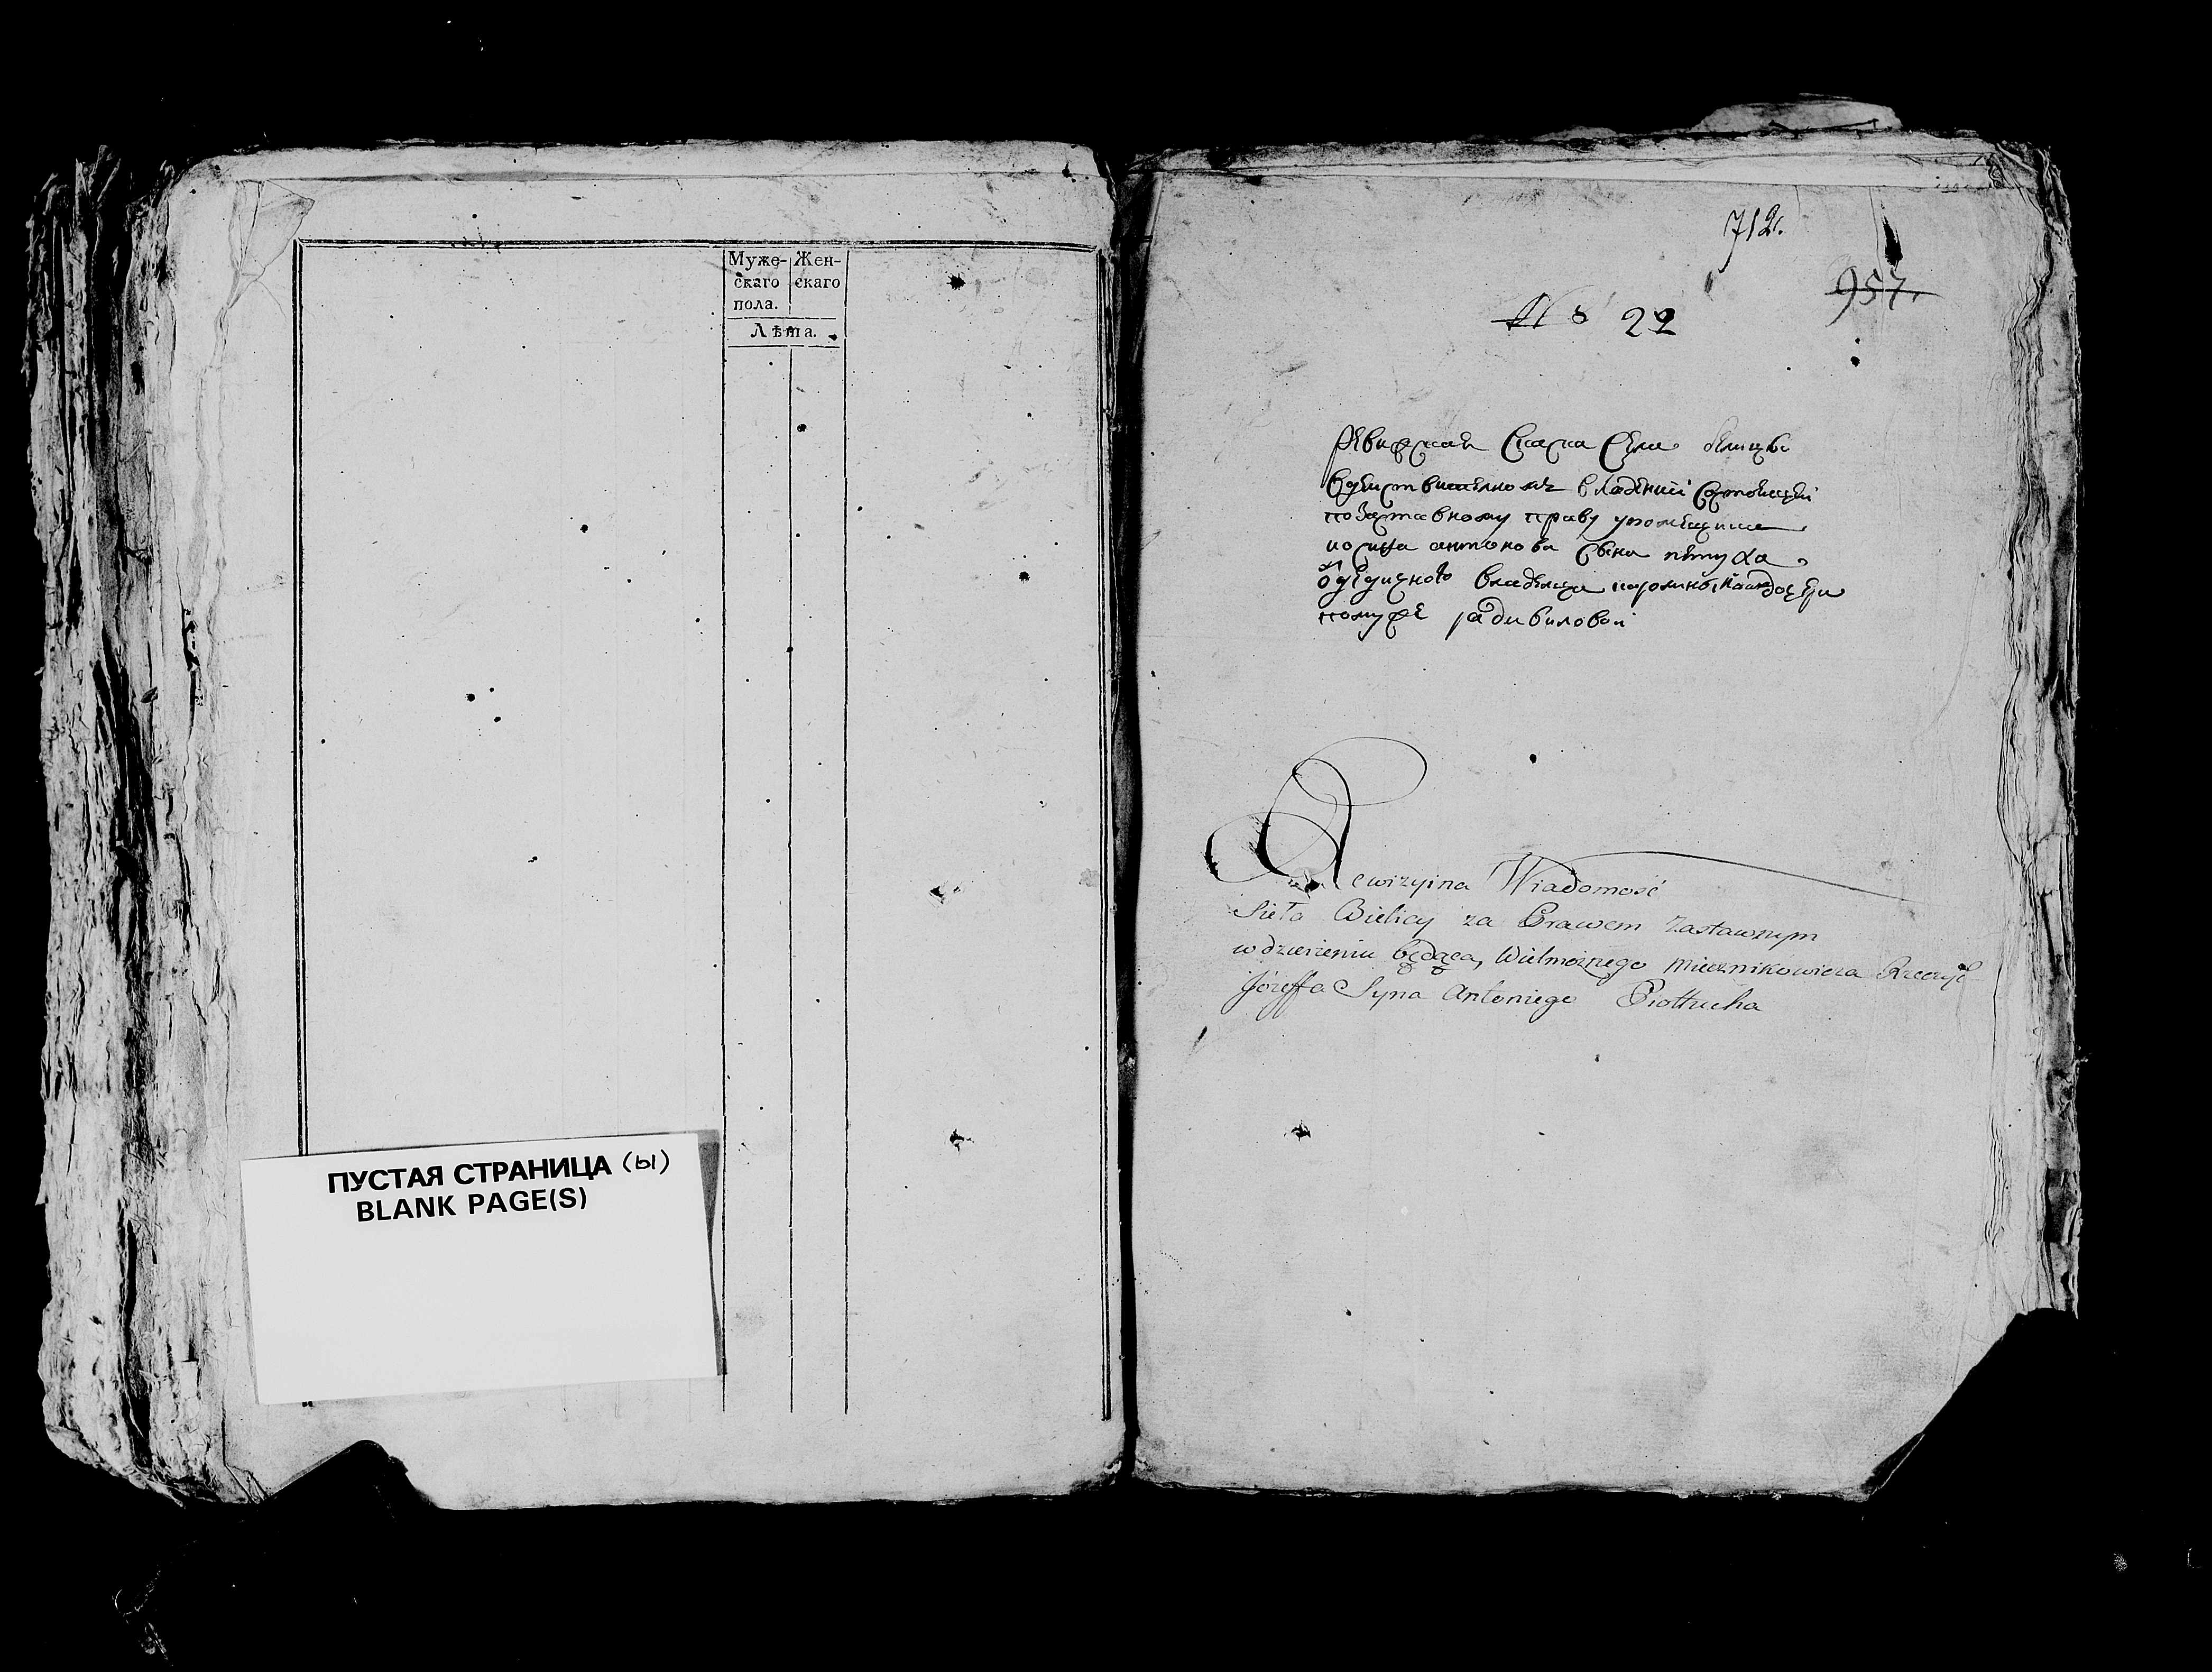 Муже-
скаго
пола.
Жен-
скаго
Лѣта.
ПУСТАЯ СТРАНИЦА (ы)
BLANK PAGE(S)
712.
957.
№ 22
Ревизская Сказка Села белицы
вдействителномъ владении Состоящей
позаставному праву упомещика
иосифа антонова Сына петуха
владелца дочери
помуже радивиловой
Rewizyina Wiadomość
Sieła Bielicy za Prawem Zastawnym
w dzierżeniu będąca, Wielmożnego Miecznikowicza Rzeczyc
Józeffa Syna Antoniego Piottucha